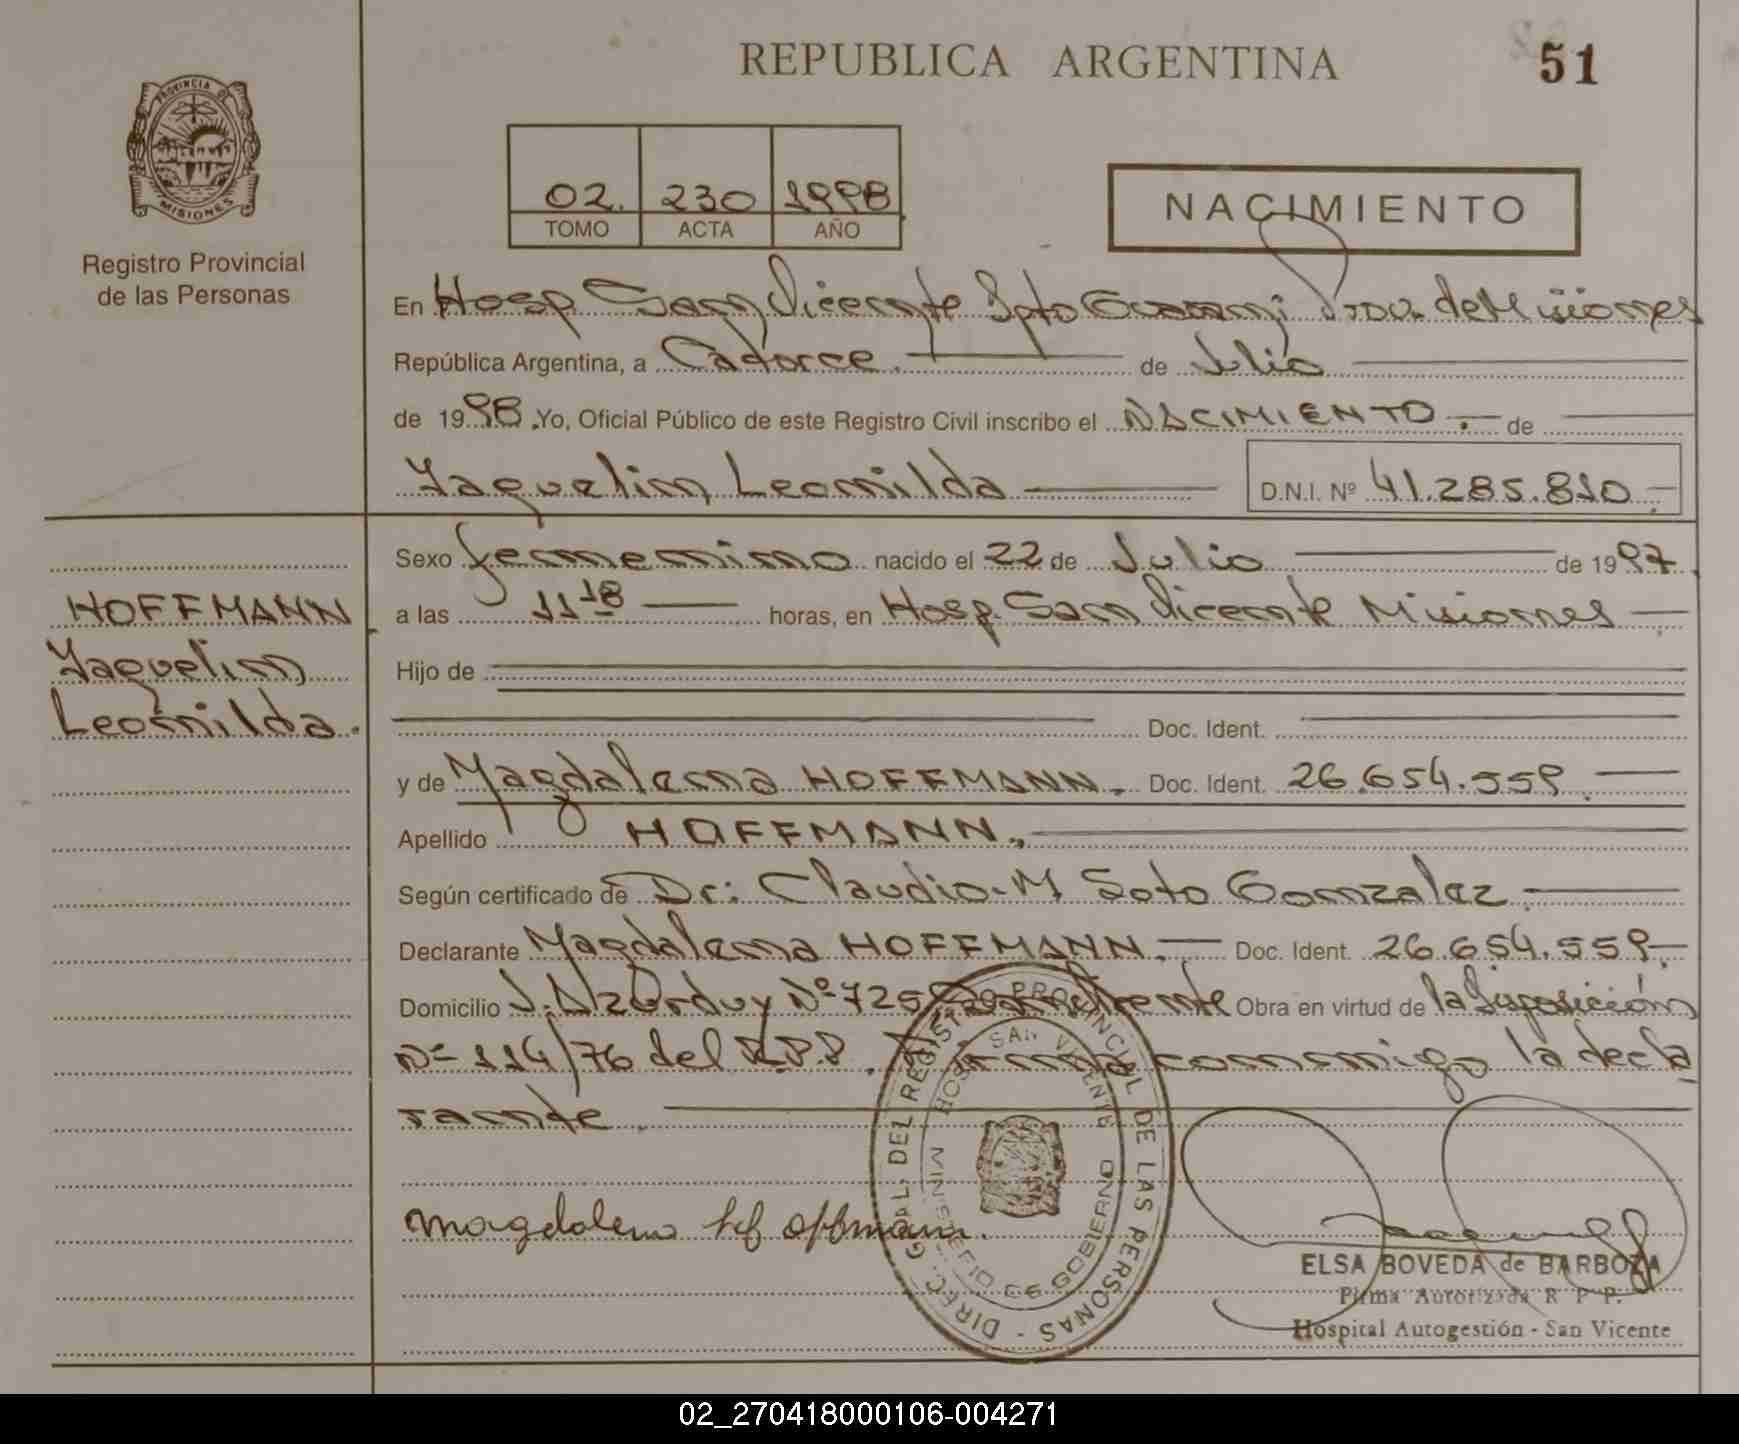 REPUBLICA ARGENTINA
51
PROVINCIA DE
MISIONES
Registro Provincial
de las Personas
02. 230 1998
TOMO ACTA AÑO
NACIMIENTO
En Hosp San Vicente Dpto Guarani Prov. de Misiones
República Argentina, a Catorce. de Julio
de 1998. Yo, Oficial Público de este Registro Civil inscribo el NACIMIENTO.- de
Yaquelin Leonilda D.N.I. Nº 41.285.810.-
Sexo femenino nacido el 22 de Julio de 1997.
a las 11 18 horas, en Hosp. San Vicente Misiones
HOFFMANN
Yaquelin
Leonilda.
Hijo de
Doc. Ident.
y de Magdalena HOFFMANN. Doc. Ident. 26.654.559.
Apellido HOFFMANN.
Según certificado de Dr: Claudio M Soto Gonzalez.
Declarante Magdalena HOFFMANN.- Doc. Ident. 26.654.559.-
Domicilio J. Azurduy Nº 725 San Vicente Obra en virtud de la Disposición
Nº 114/76 del R.P.P. Firma conmigo la decla
rante.
magdalena hoffmann.
DIREC. GRAL. DEL REGISTRO PROVINCIAL DE LAS PERSONAS -
HOSP. SAN VICENTE
MINISTERIO DE GOBIERNO
ELSA BOVEDA de BARBOZA
Firma Autorizada R P P.
Hospital Autogestión - San Vicente
02_270418000106-004271